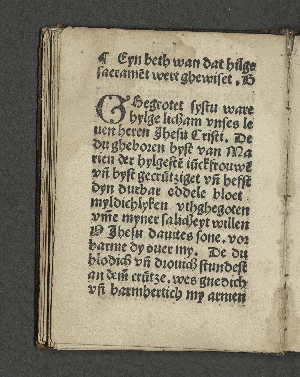 ¶ Eyn beth wan dat hilge
sacramēt wert ghewiset. B
GHegrotet systu ware
hylge licham vnses le
uen heren Jhesu Cristi. De
du gheboren byst van Ma
rien der hylgestē iūckfrouwē
vñ byst gecrütziget vñ hefst
dyn durbar eddele bloet
myldichlyken vthghegoten
vm̄e myner salicheyt willen
O Jhesu dauites sone, vor
barme dy ouer my. De du
blodich vñ drouich stundest
an dem̄ crütze, wes gnedich
vñ barmhertich my armen